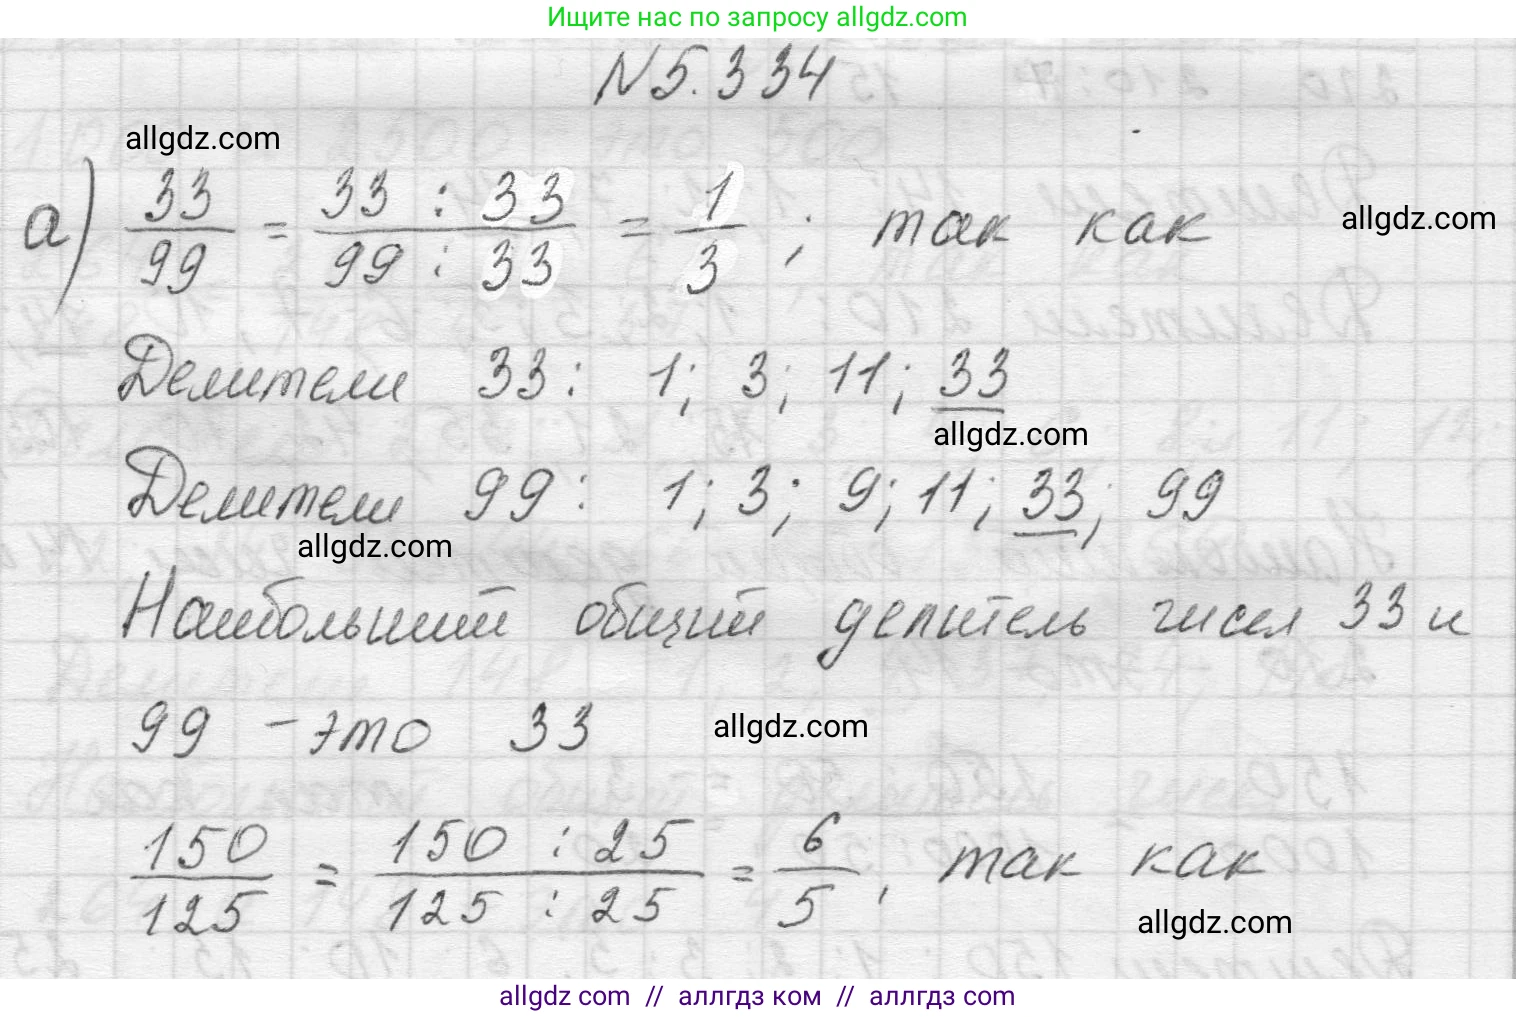 Ищите нас по запросу allgdz.com
N 5.334
allgdz.com
а) 33/99 = 33 : 33 / 99 : 33 = 1/3 ; так как
allgdz.com
Делители 33: 1; 3; 11; 33
allgdz.com
Делители 99: 1; 3; 9; 11; 33; 99
allgdz.com
Наибольший общий делитель чисел 33 и
99 - это 33
allgdz.com
150/125 = 150 : 25 / 125 : 25 = 6/5 , так как
allgdz.com
allgdz com // аллгдз ком // allgdz.com